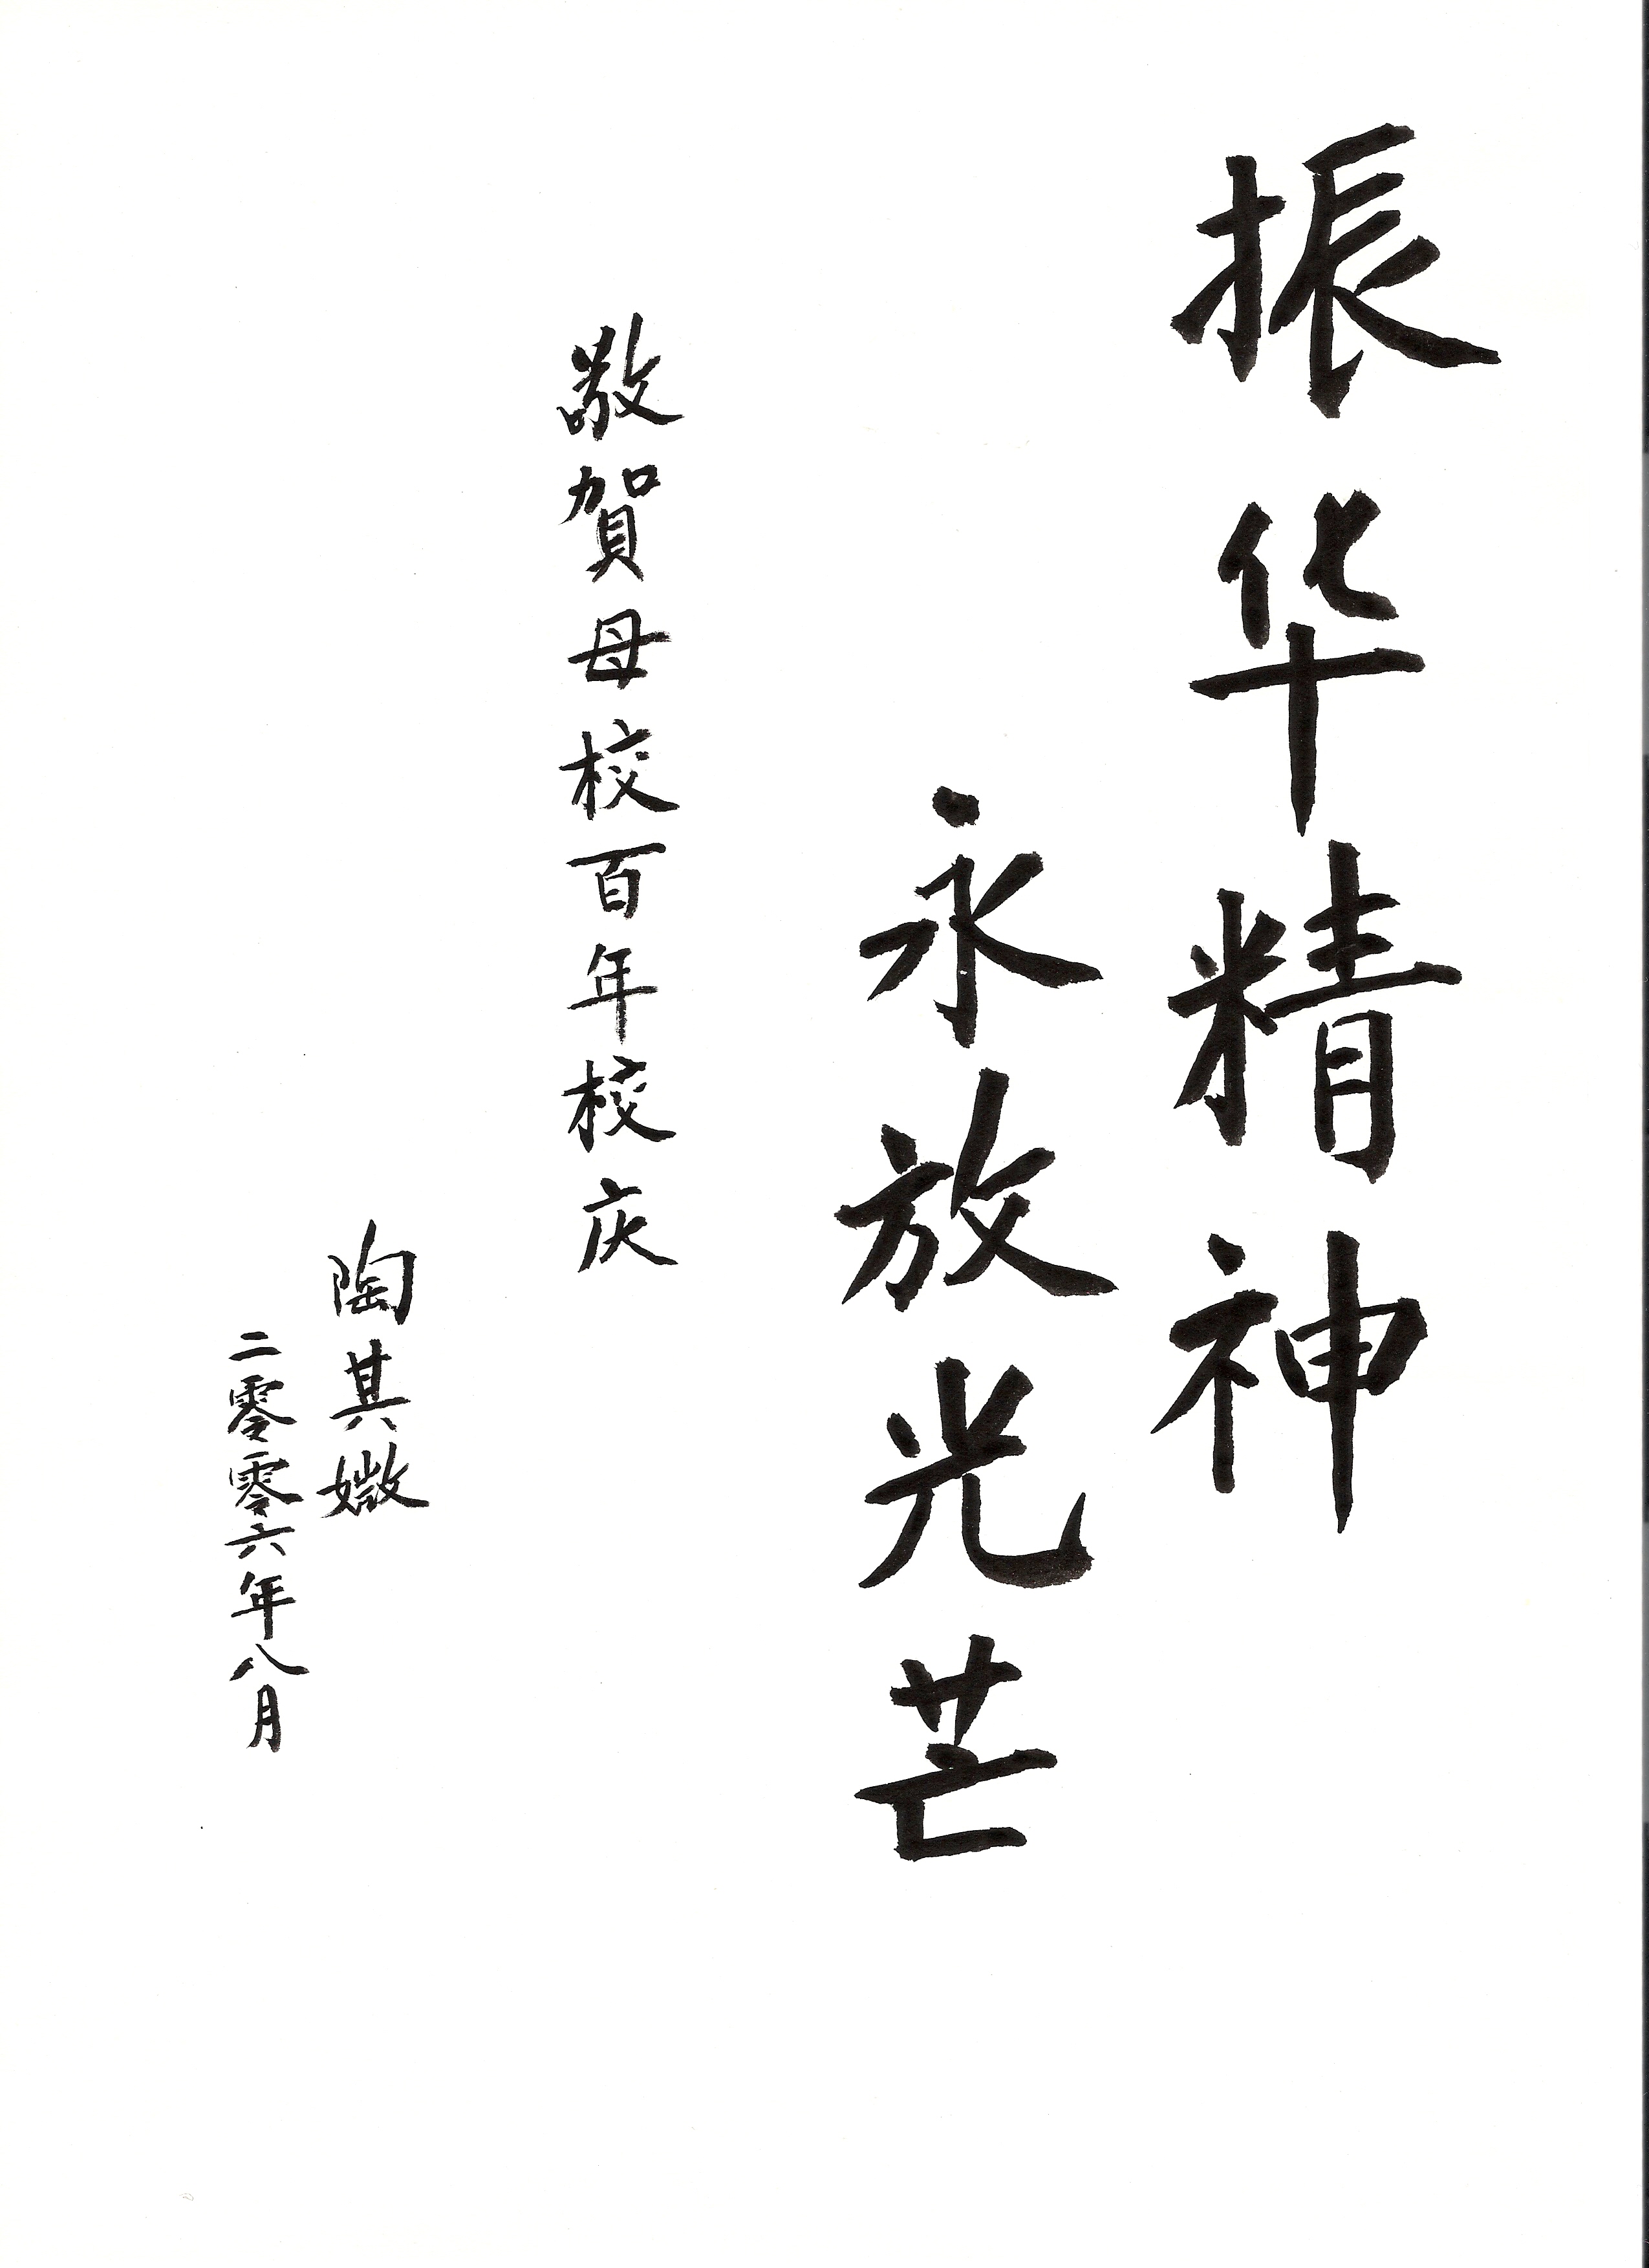 振华精神
永放光芒
敬賀母校百年校庆
陶其媺
二零零六年八月